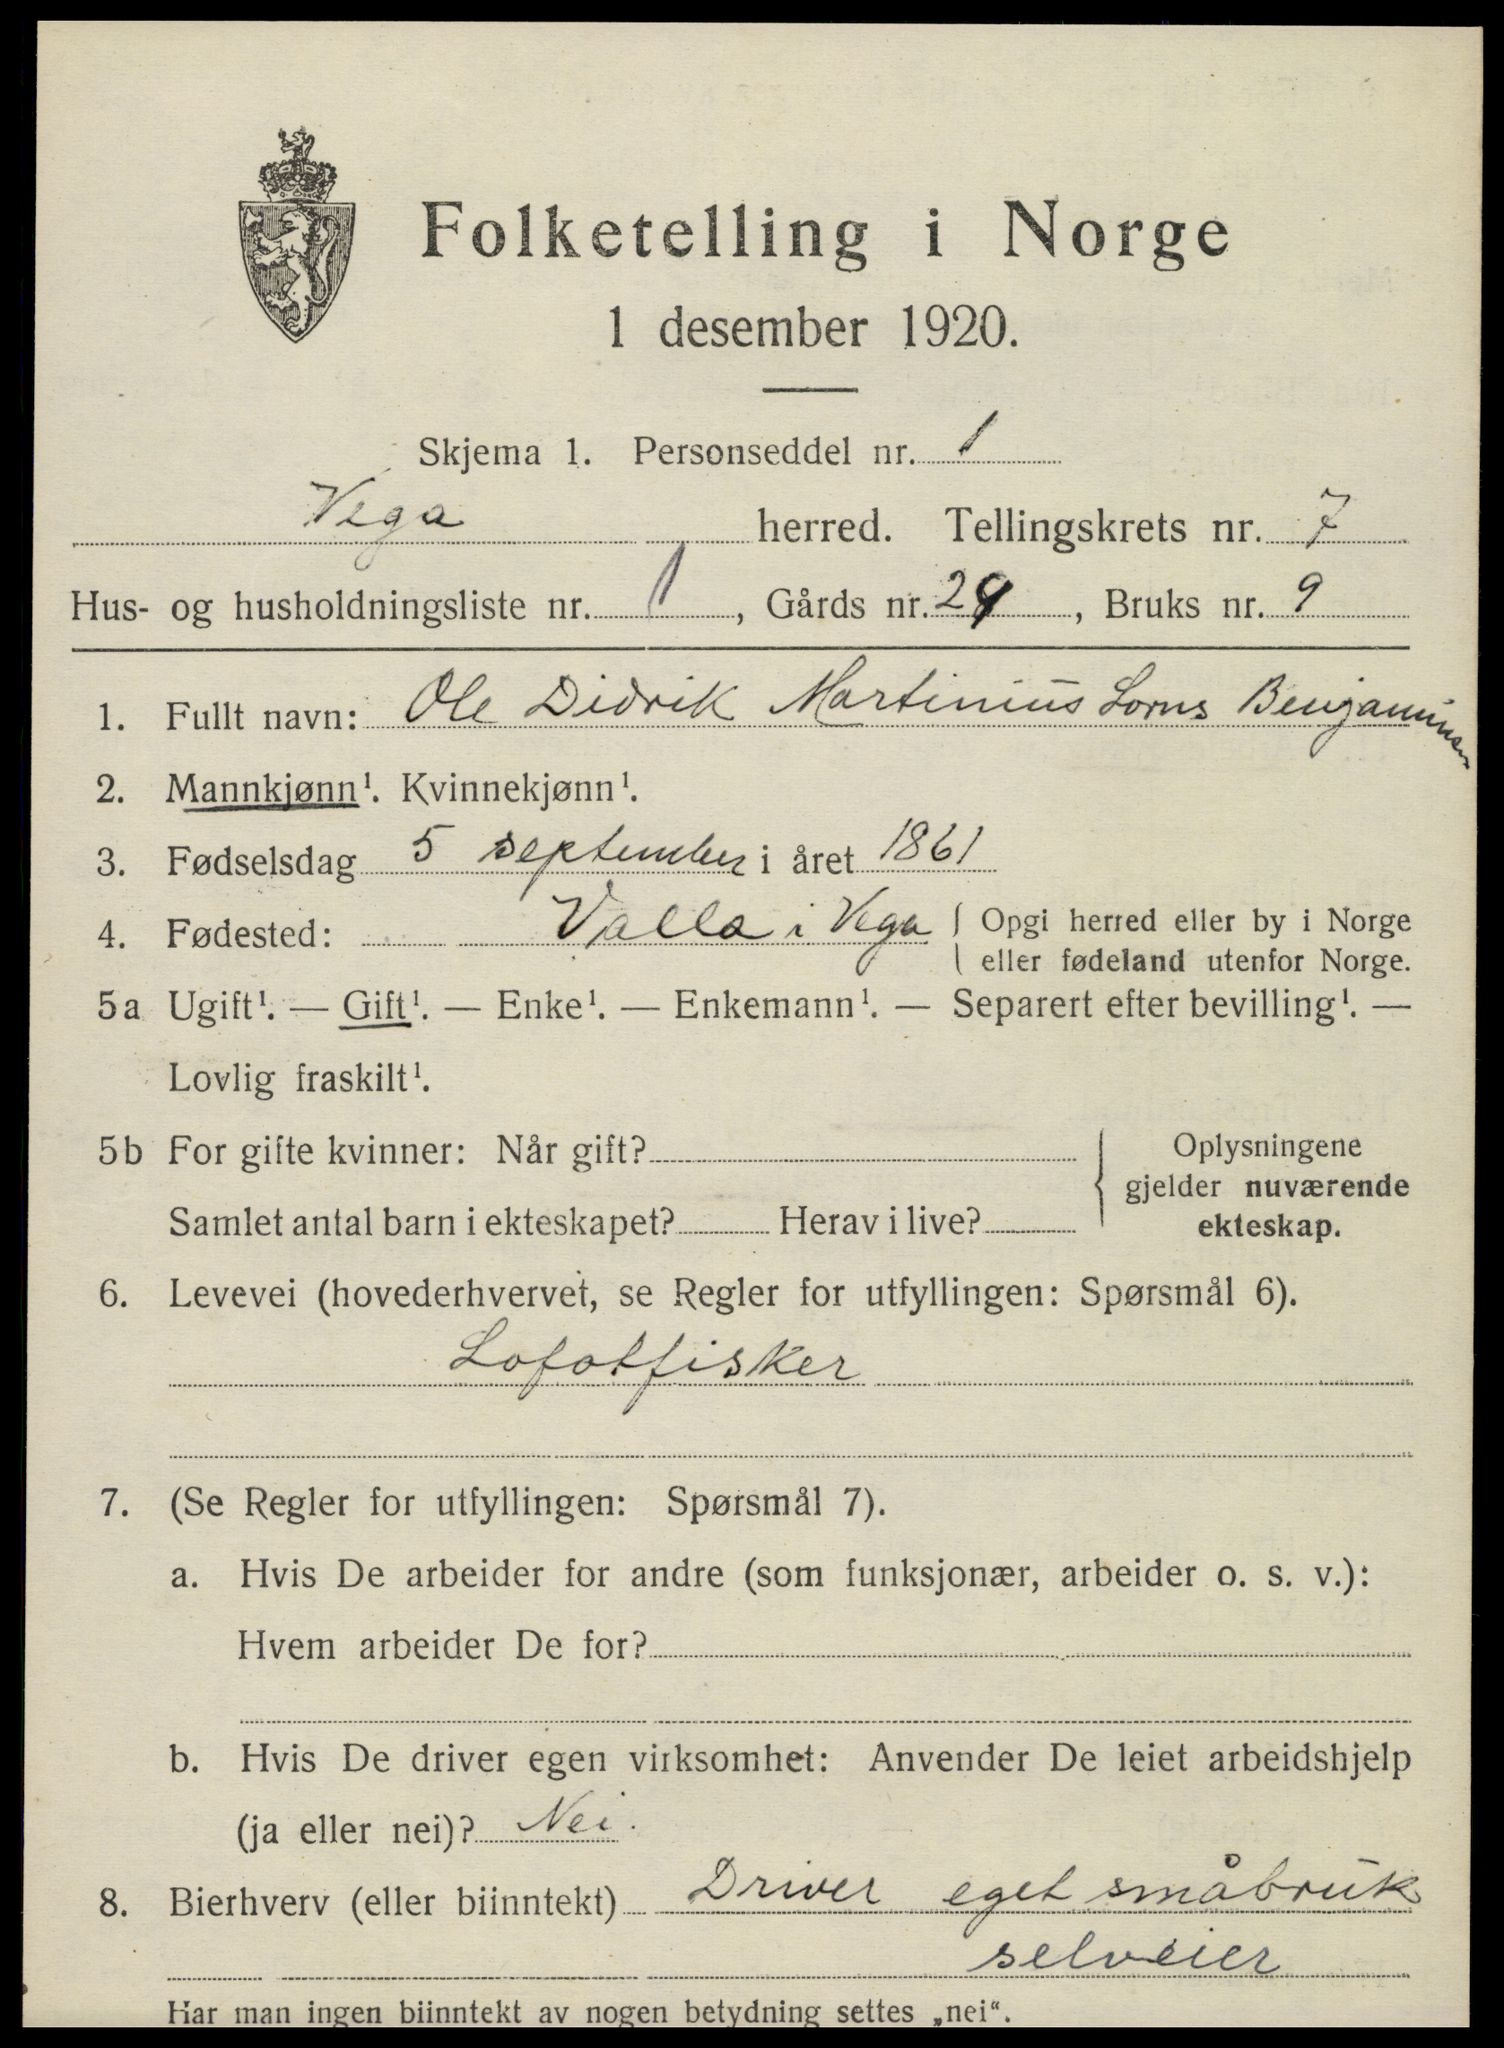 Folketelling i Norge
1 desember 1920.
Skjema 1. Personseddel nr. 1
Vega herred. Tellingskrets nr. 7
Hus- og husholdningsliste nr. 1, Gårds nr. 29, Bruks nr. 9
1. Fullt navn: Ole Didrik Martinius Lorns Benjaminsen
2. Mannkjønn¹. Kvinnekjønn¹.
3. Fødselsdag 5 september i året 1861
4. Fødested: Valla i Vega { Opgi herred eller by i Norge
eller fødeland utenfor Norge.
5a Ugift¹. — Gift¹. — Enke¹. — Enkemann¹. — Separert efter bevilling¹. —
Lovlig fraskilt¹.
5b For gifte kvinner: Når gift?
Samlet antal barn i ekteskapet? Herav i live?
{ Oplysningene
gjelder nuværende
ekteskap.
6. Levevei (hovederhvervet, se Regler for utfyllingen: Spørsmål 6).
Lofotfisker
7. (Se Regler for utfyllingen: Spørsmål 7).
a. Hvis De arbeider for andre (som funksjonær, arbeider o. s. v.):
Hvem arbeider De for?
b. Hvis De driver egen virksomhet: Anvender De leiet arbeidshjelp
(ja eller nei)? Nei.
8. Bierhverv (eller biinntekt) Driver eget småbruk
selveier
Har man ingen biinntekt av nogen betydning settes „nei“.